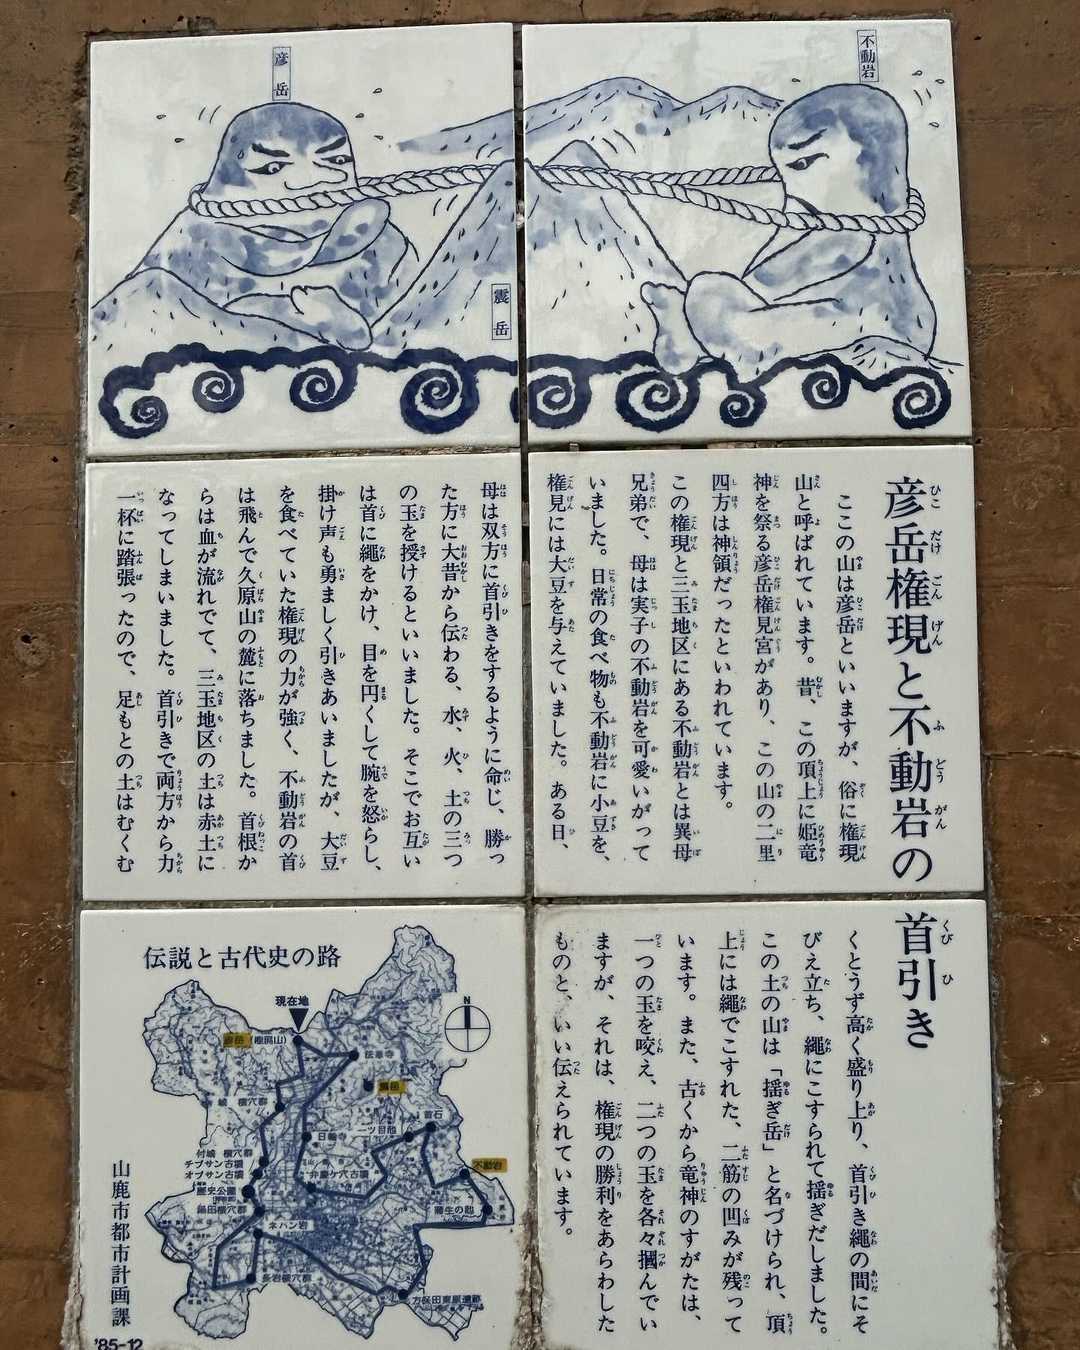 彦岳
不動岩
震岳
彦岳権現と不動岩の
首引き
ここの山は彦岳といいますが、俗に権現
山と呼ばれています。昔、この頂上に姫竜
神を祭る彦岳権見宮があり、この山の二里
四方は神領だったといわれています。
この権現と三玉地区にある不動岩とは異母
兄弟で、母は実子の不動岩を可愛いがって
いました。日常の食べ物も不動岩に小豆を、
権見には大豆を与えていました。ある日、
母は双方に首引きをするように命じ、勝っ
た方に大昔から伝わる、水、火、土の三つ
の玉を授けるといいました。そこでお互い
は首に縄をかけ、目を円くして腕を怒らし、
掛け声も勇ましく引きあいましたが、大豆
を食べていた権現の力が強く、不動岩の首
は飛んで久原山の麓に落ちました。首根か
らは血が流れでて、三玉地区の土は赤土に
なってしまいました。首引きで両方から力
一杯に踏張ったので、足もとの土はむくむ
くとうず高く盛り上り、首引き縄の間にそ
びえ立ち、縄にこすられて揺ぎだしました。
この土の山は「揺ぎ岳」と名づけられ、頂
上には縄でこすれた、二筋の凹みが残って
います。また、古くから竜神のすがたは、
一つの玉を咬え、二つの玉を各々摑んでい
ますが、それは、権現の勝利をあらわした
ものと、いい伝えられています。
伝説と古代史の路
現在地
N
彦岳
震岳
首石
一ツ目池
日輪寺
弁慶ケ穴古墳
不動岩
付城横穴群
チブサン古墳
オブサン古墳
歴史公園
鍋田横穴群
ネハン岩
長岩横穴群
方保田東原遺跡
山鹿市都市計画課
'85-12